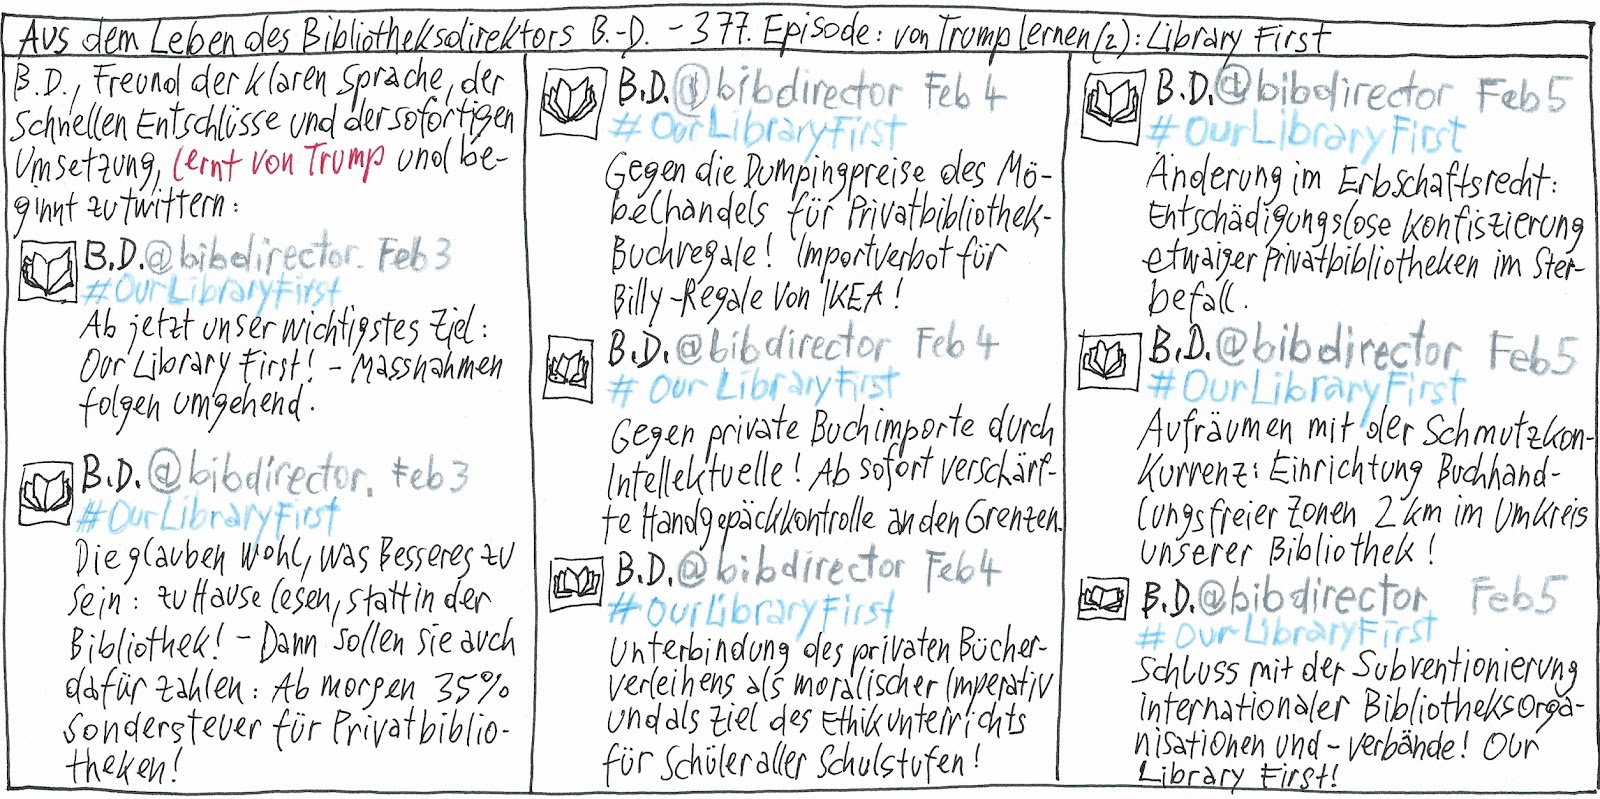 Aus dem Leben des Bibliotheksdirektors B.-D. - 377. Episode: von Trump lernen (2): Library First
B.D., Freund der klaren Sprache, der
schnellen Entschlüsse und der sofortigen
Umsetzung, lernt von Trump und be-
ginnt zu twittern:
B.D.@bibdirector. Feb 3
#OurLibraryFirst
Ab jetzt unser wichtigstes Ziel:
Our Library First! - Massnahmen
folgen umgehend.
B.D.@bibdirector. Feb 3
#OurLibraryFirst
Die glauben wohl, was Besseres zu
sein: zu Hause lesen, statt in der
Bibliothek! - Dann sollen sie auch
dafür zahlen: Ab morgen 35%
Sondersteuer für Privatbiblio-
theken!
B.D.@bibdirector Feb 4
#OurLibraryFirst
Gegen die Dumpingpreise des Mö-
belhandels für Privatbibliothek-
Buchregale! Importverbot für
Billy-Regale von IKEA!
B.D.@bibdirector Feb 4
#OurLibraryFirst
Gegen private Buchimporte durch
Intellektuelle! Ab sofort verschärf-
te Handgepäckkontrolle an den Grenzen.
B.D.@bibdirector Feb 4
#OurLibraryFirst
Unterbindung des privaten Bücher-
verleihens als moralischer Imperativ
und als Ziel des Ethikunterrichts
für Schüler aller Schulstufen!
B.D.@bibdirector Feb 5
#OurLibraryFirst
Änderung im Erbschaftsrecht:
Entschädigungslose Konfiszierung
etwaiger Privatbibliotheken im Ster-
befall.
B.D.@bibdirector Feb 5
#OurLibraryFirst
Aufräumen mit der Schmutzkon-
kurrenz: Einrichtung Buchhand-
lungsfreier Zonen 2 km im Umkreis
unserer Bibliothek!
B.D.@bibdirector Feb 5
#OurLibraryFirst
Schluss mit der Subventionierung
internationaler Bibliotheksorga-
nisationen und -verbände! Our
Library First!